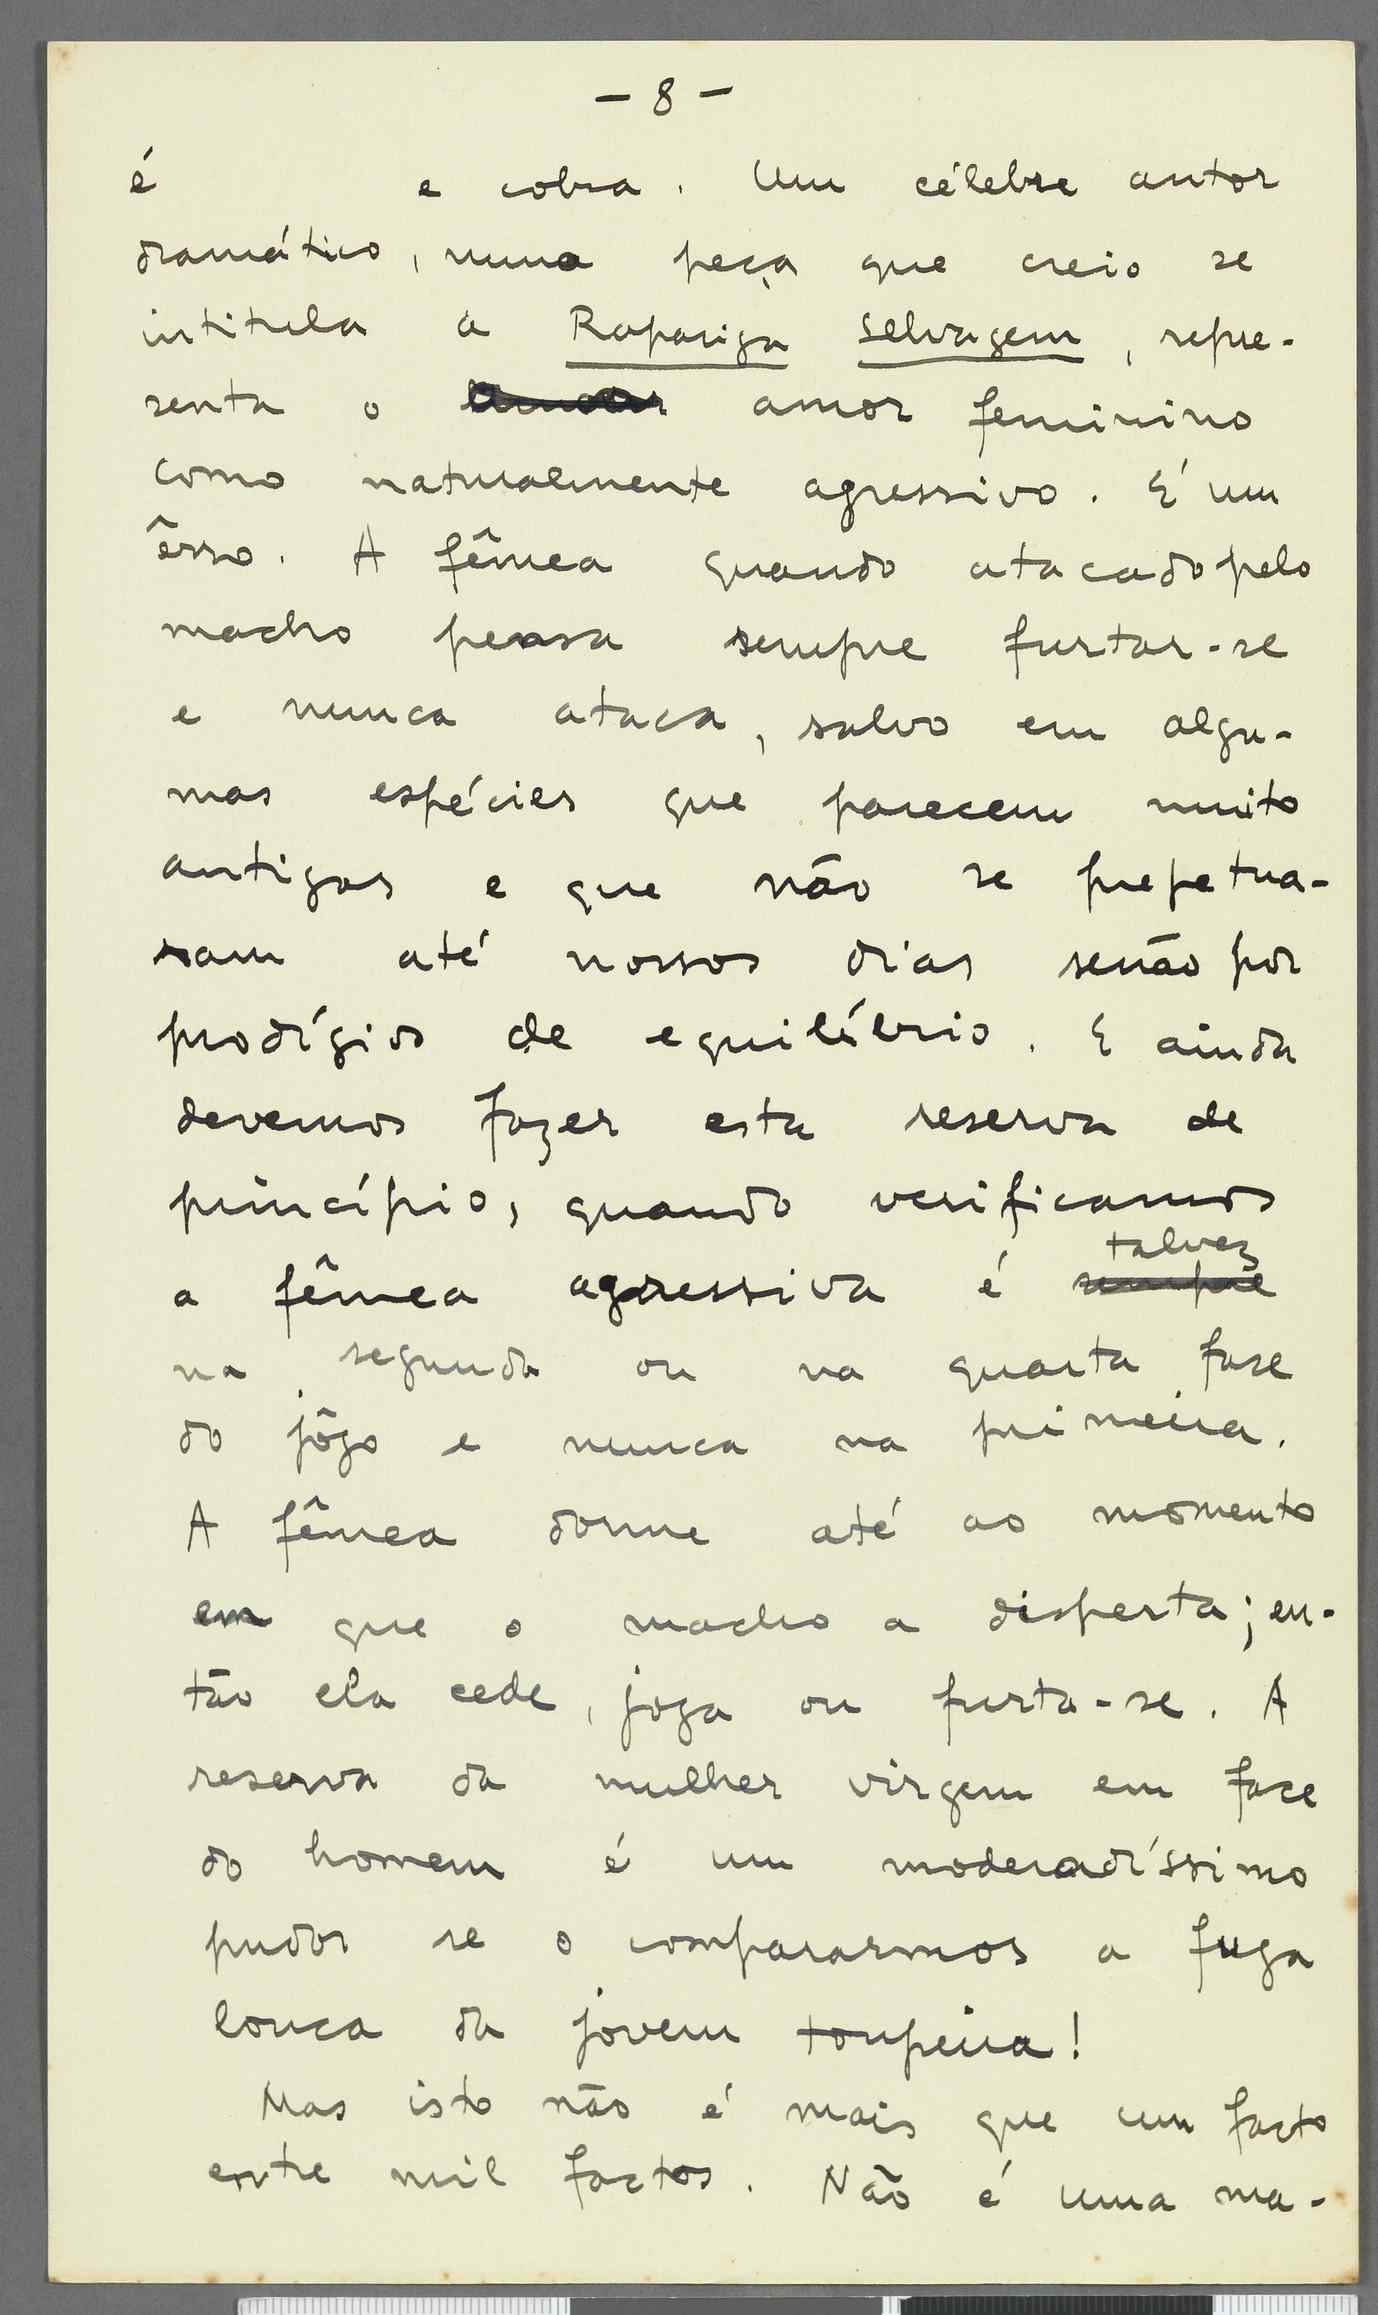 — 8 —
é e cobra. Um célebre autor
dramático, numa peça que creio se
intitula a Rapariga selvagem, repre-
senta o amor feminino
como naturalmente agressivo. É um
êrro. A fêmea quando atacado pelo
macho pensa sempre furtar-se
e nunca ataca, salvo em algu-
mas espécies que parecem muito
antigas e que não se prepetua-
ram até nossos dias senão por
prodígios de equilíbrio. E ainda
devemos fazer esta reserva de
princípio, quando verificamos
talvez
a fêmea agressiva é sempre
na segunda ou na quarta fase
do jôgo e nunca na primeira.
A fêmea dorme até ao momento
em que o macho a disperta; en-
tão ela cede, joga ou furta-se. A
reserva da mulher virgem em face
do homem é um moderadíssimo
pudor se o compararmos a fuga
louca da jovem toupeira!
Mas isto não é mais que um facto
entre mil factos. Não é uma ma-